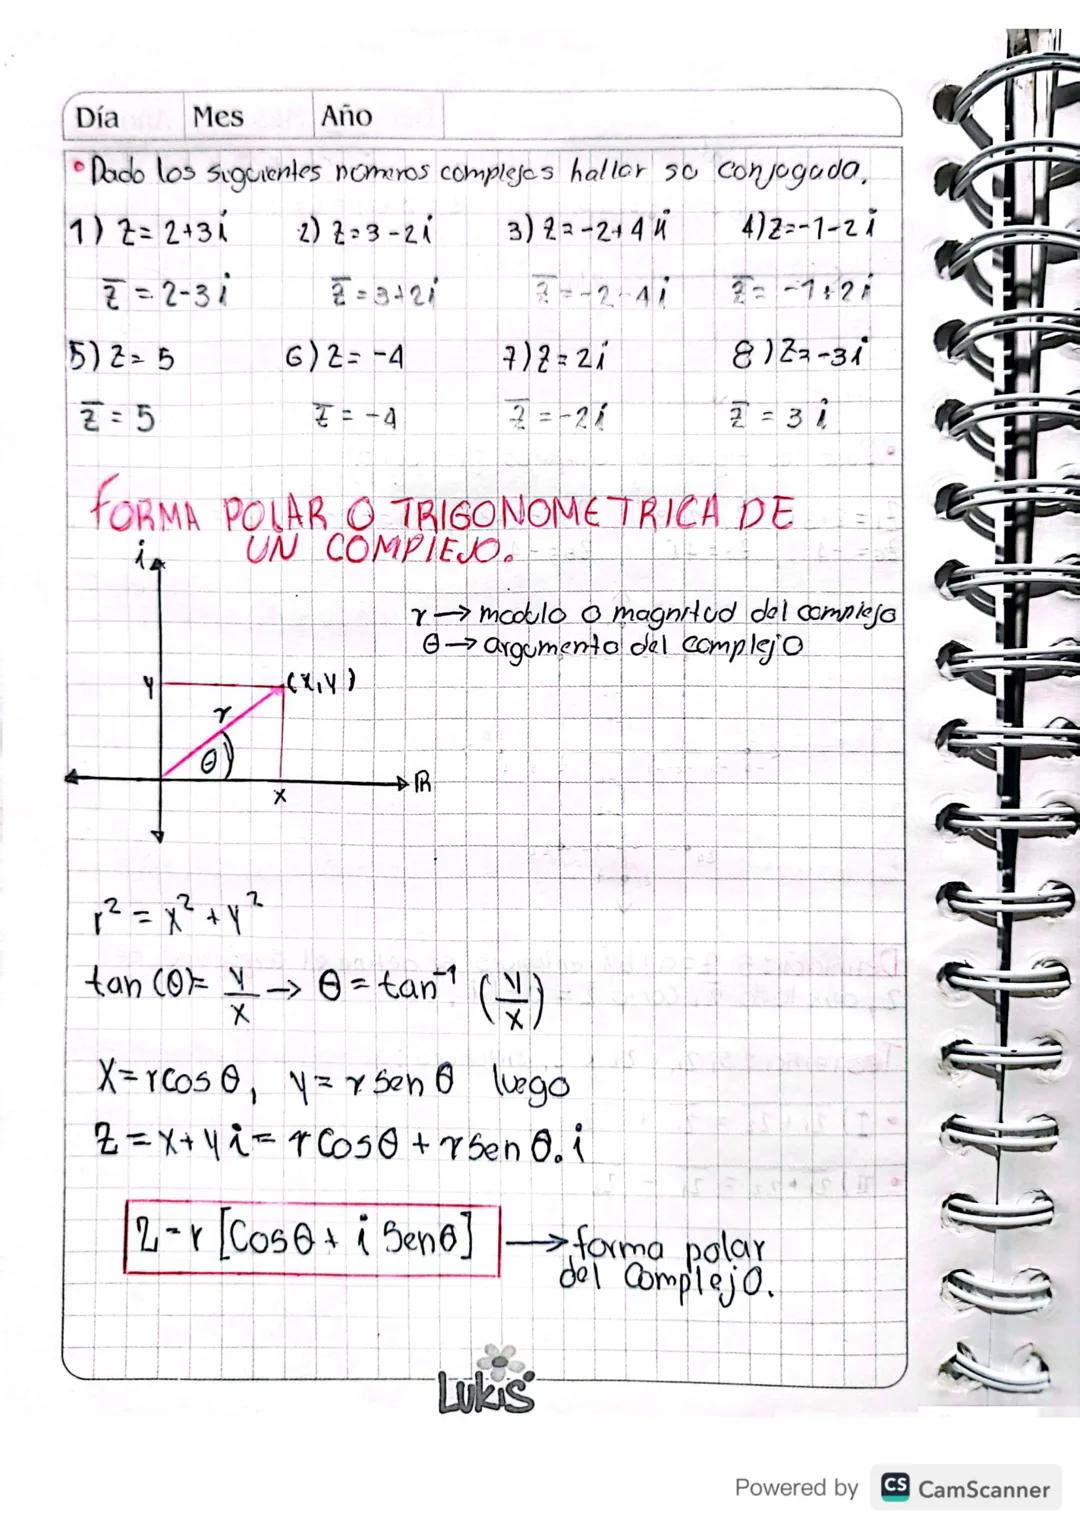 Día Mes Año
• Dado los siguientes números complejos hallar su conjugada.
1) z = 2+3i 2) z = 3-2i 3) z = -2+4i 4) z = -1-2i
z̅ = 2-3i z̅ = 3+2i z̅ = -2-4i z̅ = -1+2i
5) z = 5 6) z = -4 7) z = 2i 8) z = -3i
z̅ = 5 z̅ = -4 z̅ = -2i z̅ = 3i
FORMA POLAR O TRIGONOMETRICA DE
UN COMPLEJO.
i
r → modulo o magnitud del complejo
θ → argumento del complejo
y (x,y)
r
θ
R
x
r² = x² + y²
tan(θ) = y/x → θ = tan⁻¹ (y/x)
x = r cos θ, y = r sen θ luego
z = x+yi = r cos θ + r sen θ . i
z = r [Cos θ + i Sen θ] → forma polar
del complejo.
LUKIS
Powered by CS CamScanner